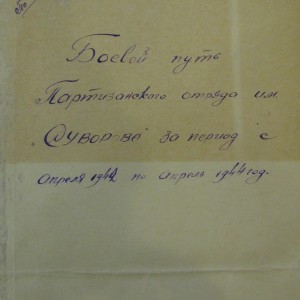 Боевой путь
Партизанского отряда им.
Суворова за период с
апреля 1942 по апрель 1944 год.